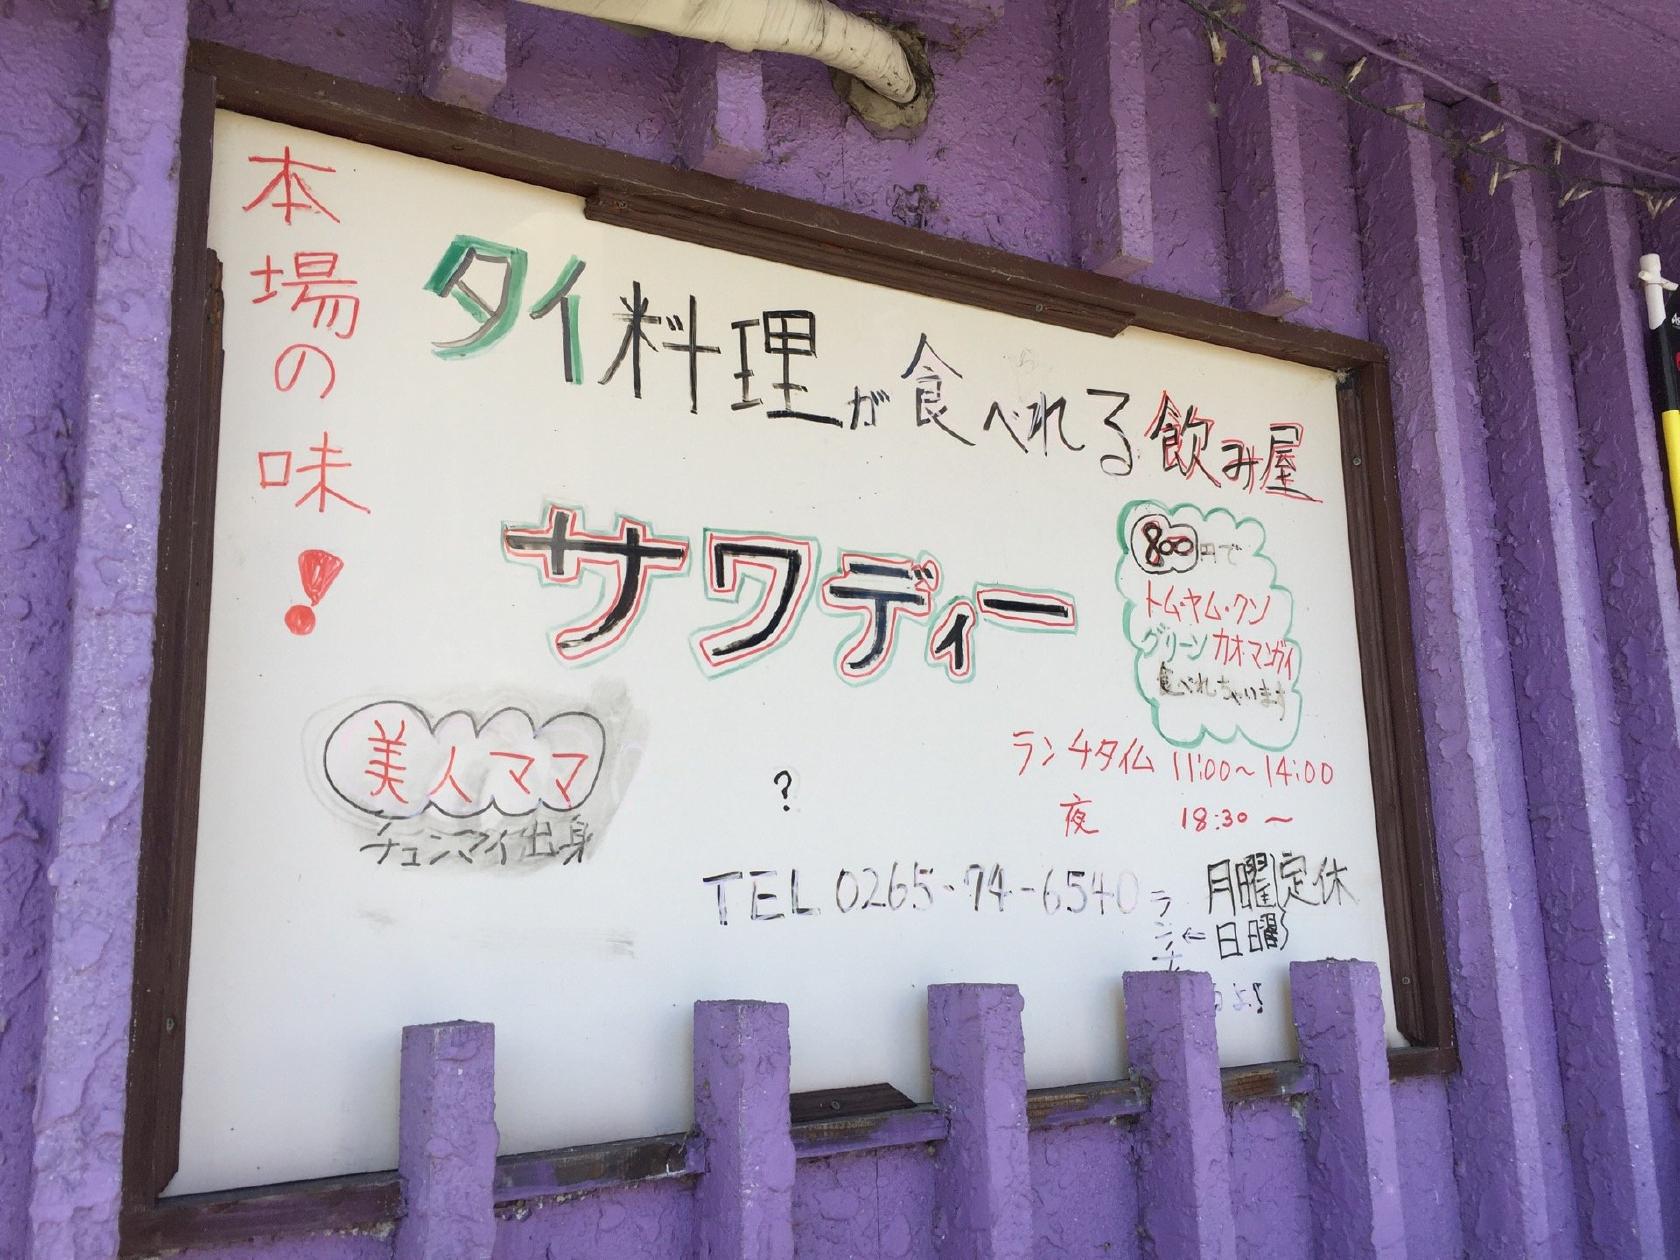 本場の味!
タイ料理が食べれる飲み屋
サワディー
800円で
トム・ヤム・クン
グリーン カオ・マンガイ
食べれちゃいます
美人ママ
チェンマイ出身
?
ランチタイム 11:00～14:00
夜 18:30～
TEL 0265-74-6540
月曜定休
日曜
ランチ←
よ!